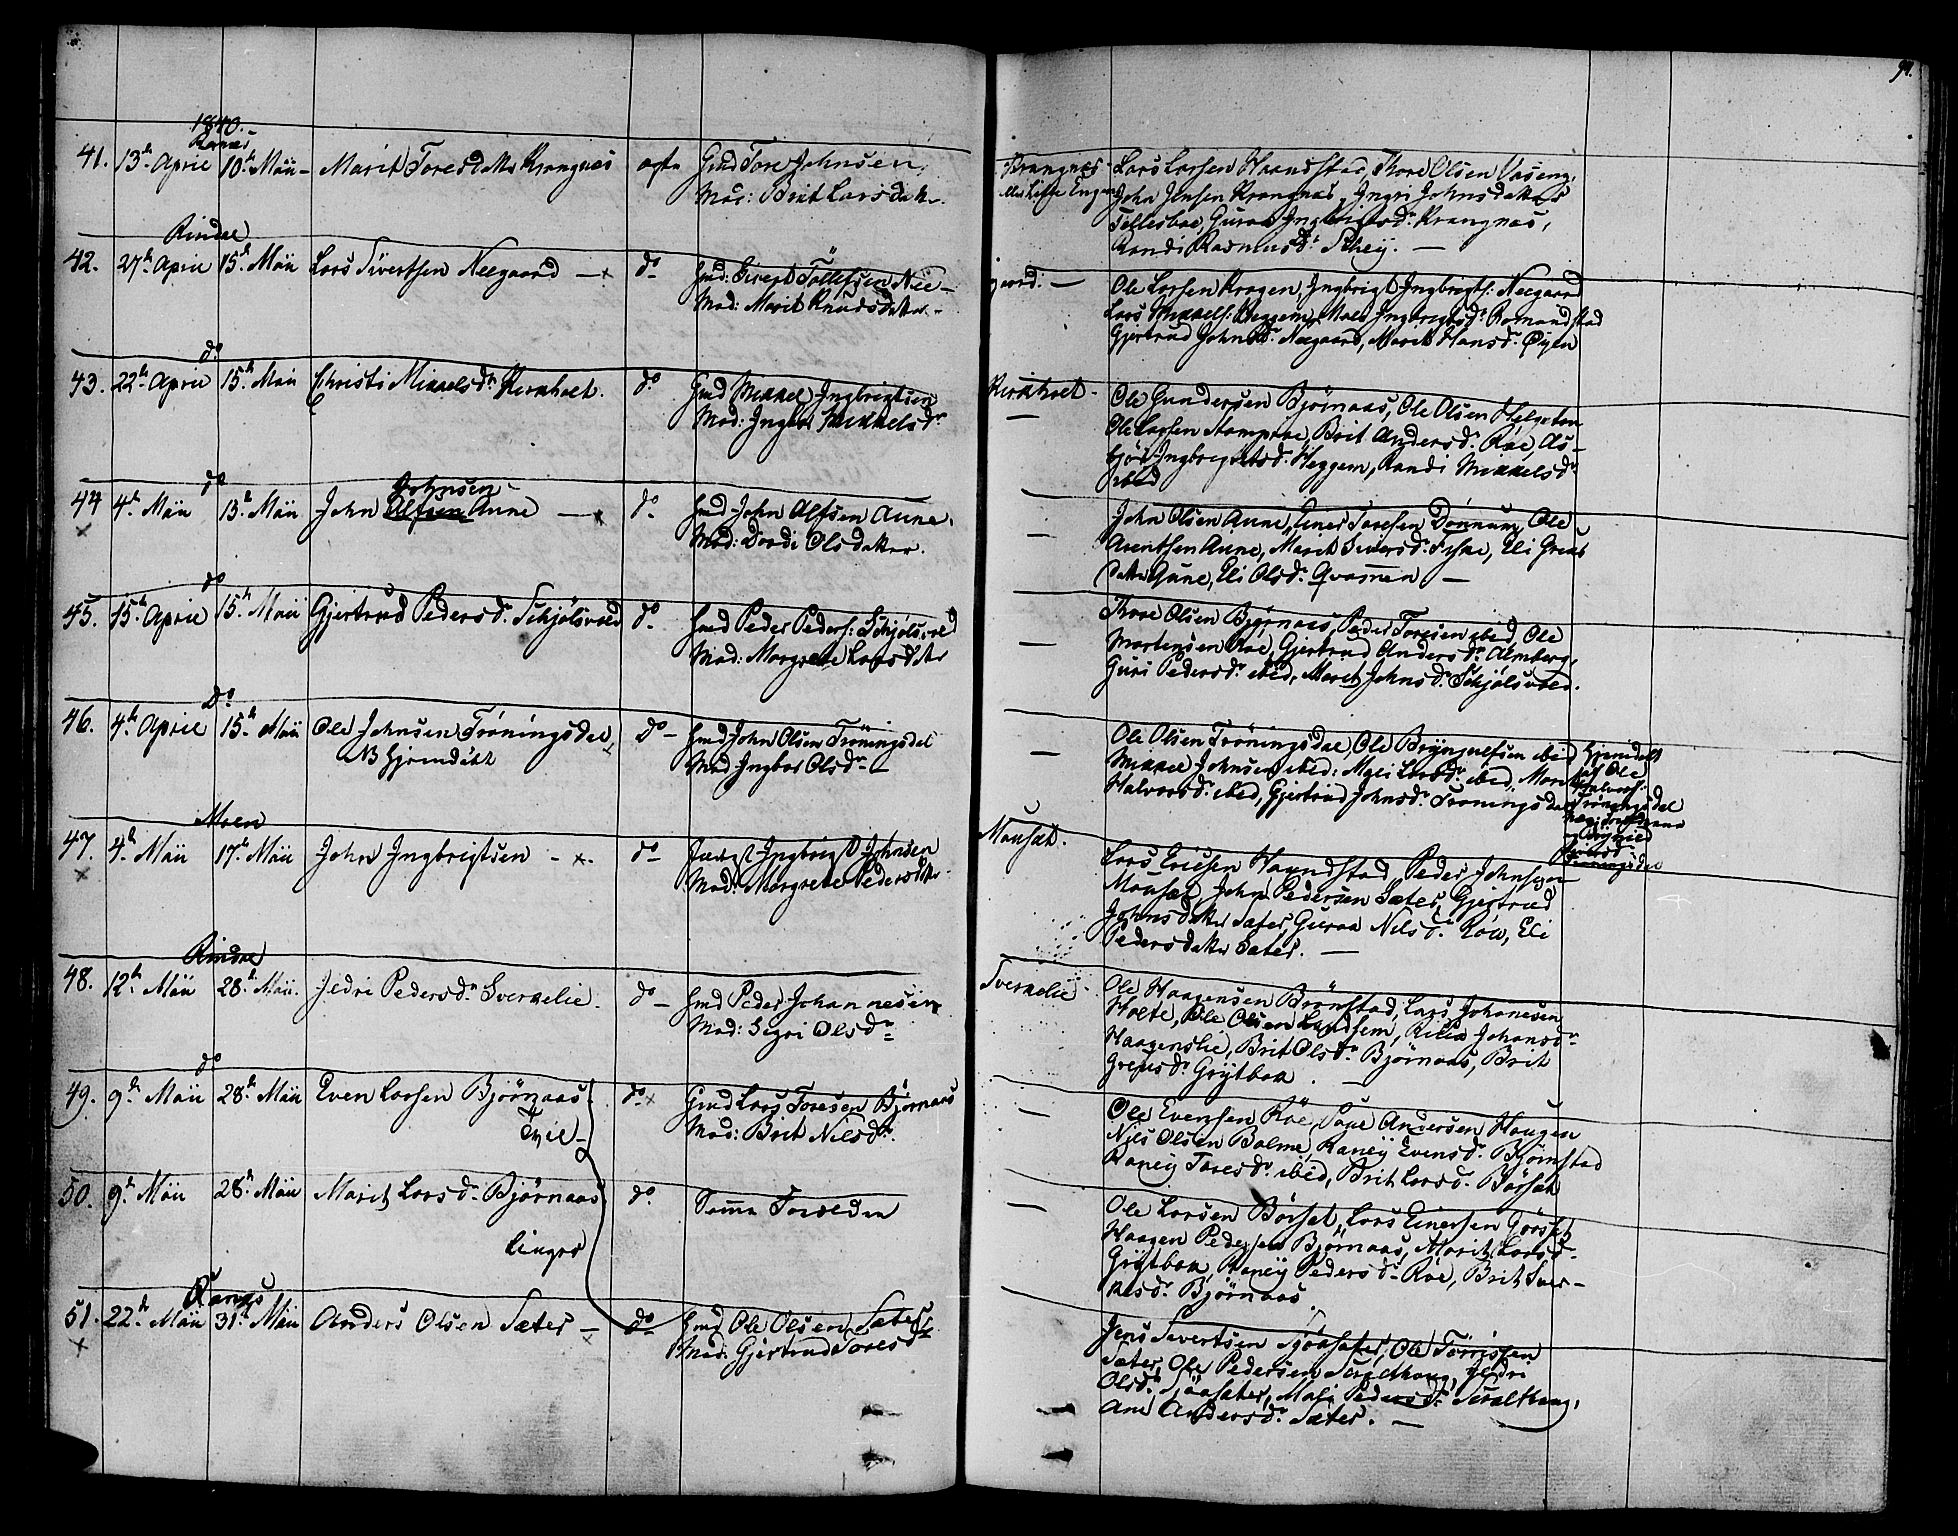 1840.
Ranes
41. 13de April 10de Maii Marit Toresdatter Krangnæs ægte Gmd Tore Johnsen,
Mod: Brit Larsdatter.
Krangnæs Lars Larsen Haandstad, Thore Olsen Vaseng,
John Jensen Krangnæs, Ingri Johnsdatter
Tellesboe, Guroe Ingbrigtsdr Krangnæs,
Randi Rasmusdr Schei.
Rindal
42. 27de April 15de Maii Lars Sivertsen Neegaard - x do Gmd: Sivert Tøllefsen Nee-
Mod: Marit Knudsdatter -
gaard. - Ole Larsen Kragen, Ingbrigt Ingbrigts: Neegaard
Lars Mikkels: Heggem, Mali Ingbrigtsdr Romundstad
Gjertrud Johnsdr Neegaard, Marit Hansdr Øyen
do
43. 22de April 15de Maii Christi Mikkelsdr Kirkholt. do Gmd Mikkel Ingbrigtsen
Mod: Ingbor Mikkelsdr
Kirkholt - Ole Gundersen Bjørnaas, Ole Olsen Helgeton
Ole Larsen Stomproe, Brit Andersdr Røe, As-
bjør Ingbrigtsdr Heggem, Randi Mikkelsdr
ibid
do
44 4de Maii 13de Maii John Alfsen Aune - x do Gmd John Alfsen Aune,
Johnsen
x Mod: Dordi Olsdatter.
- John Olsen Aune, Einer Toresen Dønnum, Ole
Arentsen Aune, Marit Siversdr Fiske, Eli Greus
datter Aune, Eli Olsdr Qvammen -
do
45. 15de April 15de Maii Gjertrud Pedersdr Schjølsvold do Gmd Peder Peders: Schjølsvold
Mod: Margrete Larsdatter
- Thore Olsen Bjørnaas, Peder Toresen ibid, Ole
Mortensen Røe, Gjertrud Andersdr Almberg,
Guri Pedersdr ibid, Marit Johnsdr Schjølsvold.
Do
46. 4de April 15de Maii Ole Johnsen Trøningsdal x Do - Gmd John Olsen Trøningsdal
NB Hjemdøbt Mod: Ingbor Olsdr -
- Ole Olsen Trøningsdal, Ole Bryngelfsen ibid Hjemdøbt
Mikkel Johnsen ibid: Mali Larsdr ibid, Marit af Ole
Halvorsdr ibid, Gjertrud Johnsdr Trøningsdal Halvors:
Trøningsdal
Trøningsdal
Moen
47. 4de Maii 17de Maii John Ingbrigtsen - x. do Inderst Ingbrigt Johnsen
x Mod: Margrete Pedersdatter
Mousæt. Lars Ericsen Haandstad, Peder Johnsen
Mousæt, John Pedersen Sæter, Gjertrud
Johnsdatter Sæter, Guroe Nilsdr Røen, Eli
Pedersdatter Sæter. -
Rindal
48. 12de Maii 28de Maii. Sedri Pedersdr Sverkelie. do - Gmd Peder Johannesen
Mod: Segri Olsdr
Sverkelie - Ole Haagensen Brønstad, Lars Johanesen
Holte, Ole Olsen Landsem, Kilia Johansdr
Haagenslie, Brit Olsdr Bjørnaas, Brit
Grejusdr Grytbak. -
do
49. 9de Maii 28de Maii Even Larsen Bjørnaas do x Gmd Lars Toresen Bjørnaas
Tvil- Mod: Brit Nilsdr.
- Ole Evensen Røe, Tore Andersen Haugen
Nils Olsen Bolme, Raney Evensdr Bjørnstad
Raney Toresdr ibid, Brit Larsdr Børset
50. 9de Maii 28de Maii Marit Larsdr Bjørnaas do Samme Forældre
linger
- Ole Larsen Børset, Lars Einersen Gørset
Haagen Pedersen Bjørnaas, Marit Larsdr
Grytbak, Raney Pedersdr Røe, Brit Siver-
nesdr Bjørnaas
Ranes
51. 22de Maii 31te Maii Anders Olsen Sæter - x do Gmd Ole Olsen Sæter
x Mod: Gjertrud Toresdr
Jens Sivertsen Sjøasæter, Ole Tørrissen
Sæter, Ole Pedersen Settelhaug, Sedri
Olsdr Sjøasæter, Mali Pedersdr
Ane Andersdr Sæter. -